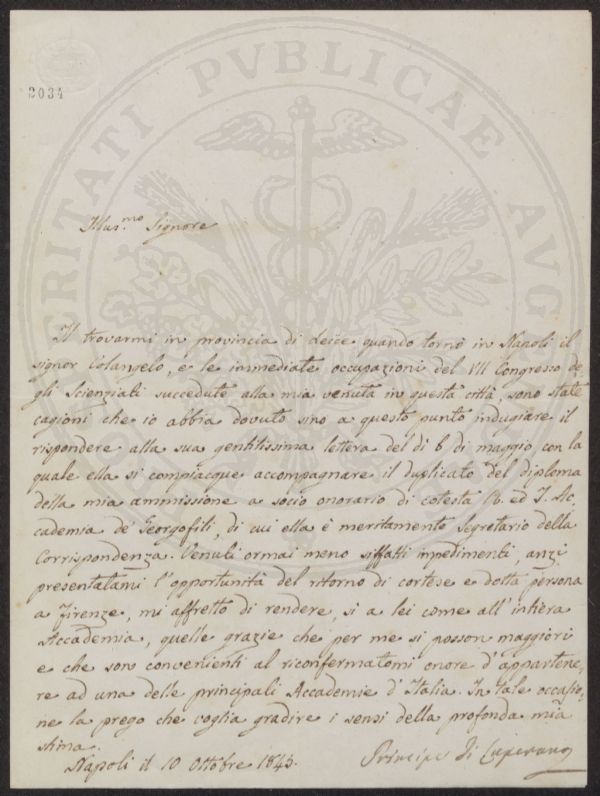 2034
PUBLICAE
Illus.mo Signore
Il trovarmi in provincia di Lecce quando tornò in Napoli il
signor Colangelo, e le immediate occupazioni del VII Congresso de
gli Scienziati succedute alla mia venuta in questa città, sono state
cagioni che io abbia dovuto sino a questo punto indugiare il
rispondere alla sua gentilissima lettera del dì 6 di maggio, con la
quale ella si compiacque accompagnare il duplicato del diploma
della mia ammissione a socio onorario di cotesta R. ed I. Ac
cademia de' Georgofili, di cui ella è meritamente Segretario della
Corrispondenza. Venuti ormai meno siffatti impedimenti, anzi
presentatami l'opportunità del ritorno di cortese e dotta persona
a Firenze, mi affretto di rendere, sì a lei come all'intiera
Accademia, quelle grazie che per me si posson maggiori
e che sono convenienti al riconfermatomi onore d'appartene,
re ad una delle principali Accademie d'Italia. In tale occasio,
ne la prego che voglia gradire i sensi della profonda mia
stima.
Napoli il 10 Ottobre 1845.
Principe di